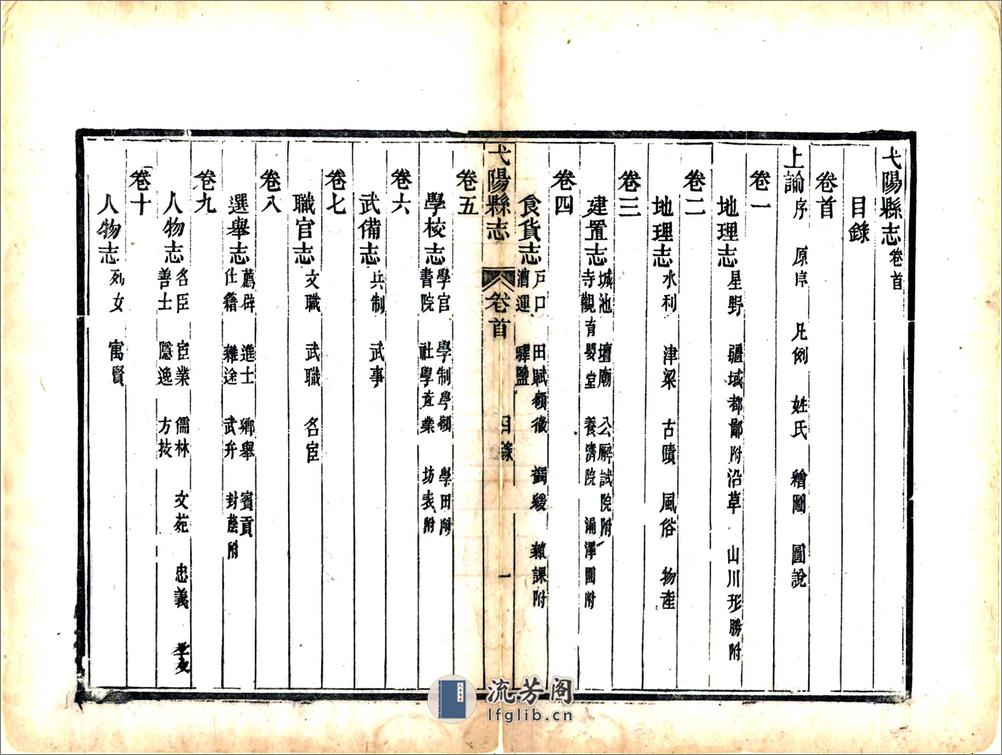 弋陽縣志卷首
目錄
卷首
上諭 序 原序 凡例 姓氏 繪圖 圖說
卷一
地理志 星野 疆域都鄙附 沿革 山川形勝附
卷二
地理志 水利 津梁 古蹟 風俗 物產
卷三
建置志 城池 壇廟 公廨試院附
寺觀育嬰堂 養濟院 漏澤園附
卷四
食貨志 戶口 田賦額徵 蠲緩 雜課附
漕運 驛鹽
弋陽縣志 卷首 目錄 一
卷五
學校志 學宮 學制學額 學田附
書院 社學產業 坊表附
卷六
武備志 兵制 武事
卷七
職官志 文職 武職 名宦
卷八
選舉志 薦辟 進士 鄉舉 賓貢
仕籍 雜途 武弁 封蔭附
卷九
人物志 名臣 宦業 儒林 文苑 忠義 孝友
善士 隱逸 方技
卷十
人物志 列女 寓賢
流芳阁
lfglib.cn